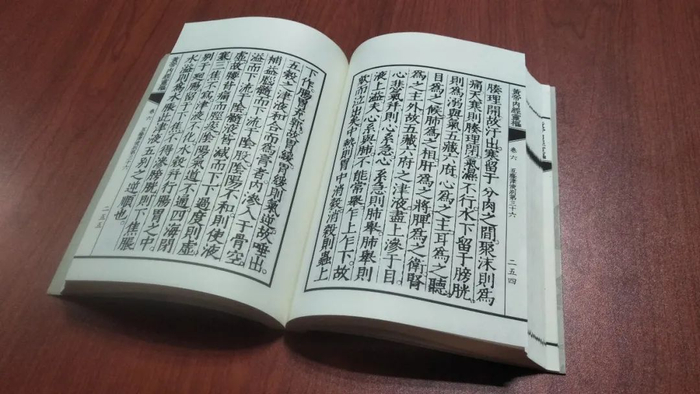 黃帝內經靈樞
卷六 五癃津液別第三十六
二五四
腠理開故汗出。寒留于分肉之間。聚沫則爲
痛天寒則腠理閉氣濕不行水下留于膀胱
則爲溺與氣五藏六府心爲之主耳爲之聽
目爲之候肺爲之相肝爲之將脾爲之衛腎
爲之主外故五藏六府之津液盡上滲于目
心悲氣并則心系急心系急則肺舉肺舉則
液上溢夫心系與肺不能常舉乍上乍下故
欬而泣出矣中熱則胃中消穀消穀則蟲上
下作腸胃充郭故胃緩胃緩則氣逆故唾出。
五穀之津液和合而爲膏者内滲入于骨空。
補益腦髓而下流于陰股陰陽不和則使液
溢而下流于陰髓液皆減而下下過度則虛
虛故腰背痛而脛痠陰陽氣道不通四海閉
塞三焦不寫津液不化水穀并行腸胃之中
別于廻腸留于下焦不得滲膀胱則下焦脹
水溢則爲水脹此津液五別之逆順也。
黃帝內經靈樞
卷六 五癃津液別第三十六
二五五